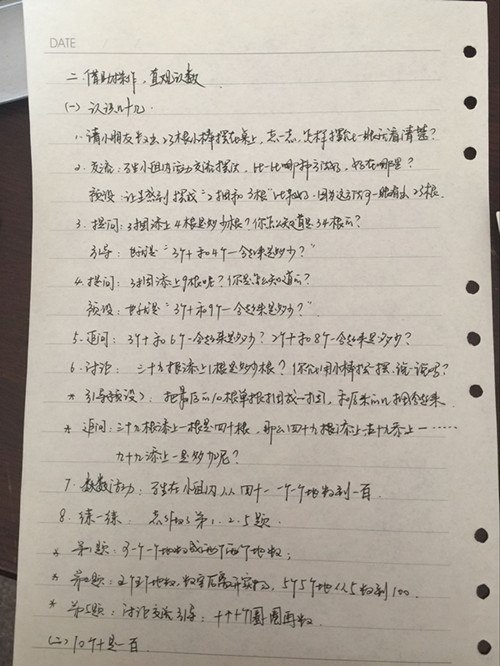 DATE
二、借助操作，直观认数
(一) 认识几十几
1. 请小朋友拿出23根小棒摆在桌上，想一想，怎样摆让人一眼就看清楚？
2. 交流：学生小组内活动交流摆法，比一比哪种方法好，好在哪里？
预设：让学生感到摆成“2捆和3根”比较好，因为这样可以一眼看出23根.
3. 提问：3捆添上4根是多少根？你怎么知道是34根的？
引导：也就是“3个十和4个一合起来是多少？”
4. 提问：3捆添上9根呢？你是怎么知道的？
预设：也就是“3个十和9个一合起来是多少？”
5. 追问：3个十和6个一合起来是多少？2个十和8个一合起来是多少？
6. 讨论：三十九根添上1根是多少根？你会用小棒摆一摆、说一说吗？
* 引导预设：把最后的10根单根捆成一捆，和原来的几捆合起来.
* 追问：三十九根添上一根是四十根，那么四十九根添上一 五十九添上一……
九十九添上一是多少呢？
7. 数数活动：学生在小组内从四十一一个一个地数到一百.
8. 练一练：想想做做第1、2、5题.
* 第1题：可一个一个地数或两个两个地数；
* 第2题：2个2个地数，5个5个地从5数到100.
* 第5题：讨论交流引导：十个十个圈圈再数.
(二) 10个十是一百